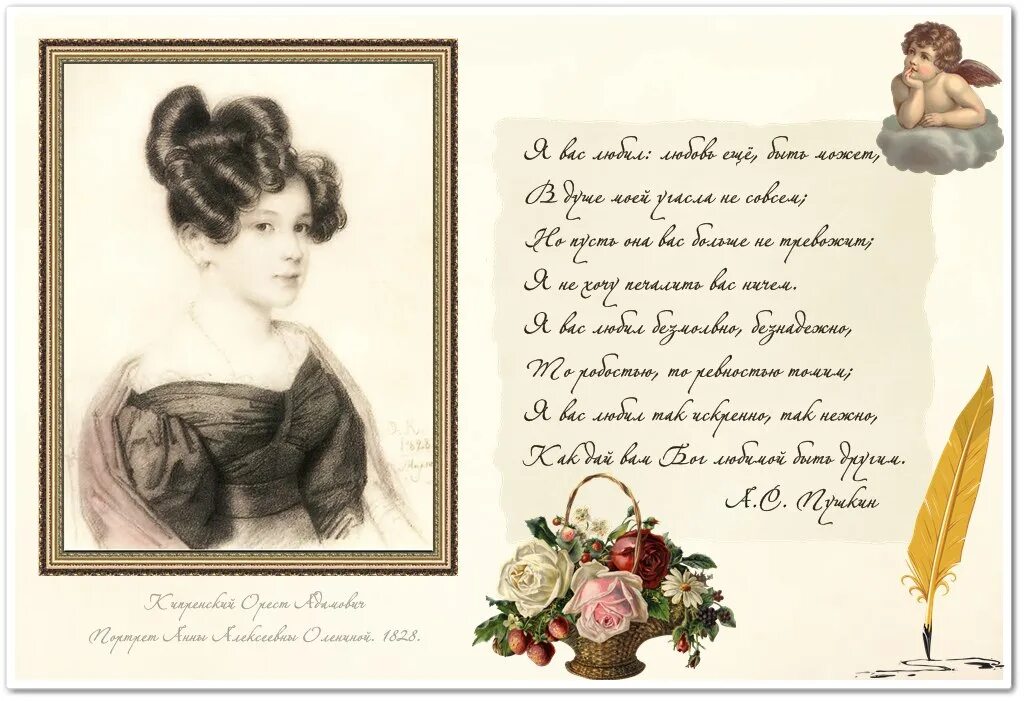 Я вас любил: любовь ещё, быть может,
В душе моей угасла не совсем;
Но пусть она вас больше не тревожит;
Я не хочу печалить вас ничем.
Я вас любил безмолвно, безнадежно,
То робостью, то ревностью томим;
Я вас любил так искренно, так нежно,
Как дай вам Бог любимой быть другим.
А.С. Пушкин
1828
Кипренский Орест Адамович
Портрет Анны Алексеевны Олениной. 1828.